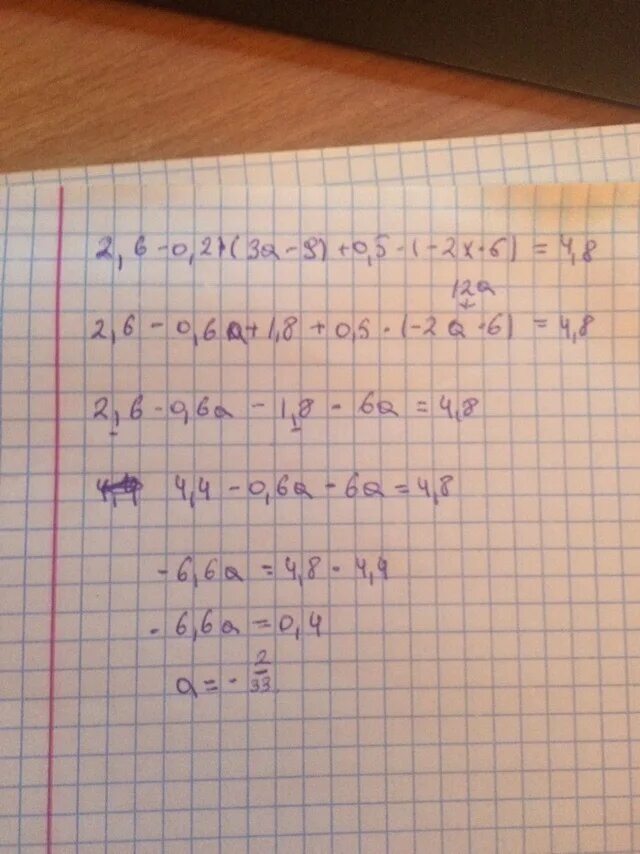 2,6 - 0,2·(3a - 9) + 0,5 · (-2x · 6) = 4,8
12a
2,6 - 0,6a + 1,8 + 0,5 · (-2a · 6) = 4,8
2,6 - 0,6a - 1,8 - 6a = 4,8
4,4 - 0,6a - 6a = 4,8
- 6,6a = 4,8 - 4,4
- 6,6a = 0,4
a = - 2/33